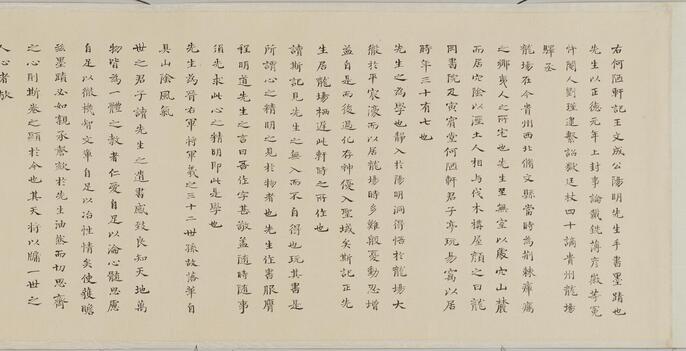 右何陋軒記王文成公陽明先生手書墨蹟也
先生以正德元年上封事論戴銑薄彥徽等冤
忤閹人劉瑾逮繫詔獄廷杖四十謫貴州龍場
驛丞
龍場在今貴州西北脩文縣當時為荊棘瘴癘
之鄉夷人之所宅也先生至無室以處穴山麓
而居穴陰以溼土人相与伐木構屋顏之曰龍
岡書院及寅賓堂何陋軒君子亭玩易窩以居
時年三十有七也
先生之為學也靜入於陽明洞得悟於龍場大
徹於平宸濠而以居龍場時多難殷憂動忍增
益自是而後過化存神優入聖域矣斯記正先
生居龍場栖遲此軒時之所作也
讀斯記見先生之無入而不自得也玩其書是
所謂心之精明之見於物者也先生作書服膺
程明道先生之言曰吾作字甚敬蓋隨時隨事
須先求此心之精明即此是學也
先生為晉右軍將軍羲之三十二世孫故落筆自
具山陰風氣
世之君子讀先生之遺書感致良知天地萬
物皆為一體之教者仁愛自足以淪心髓思慮
自足以徹機智文章自足以冶性情矣使獲瞻
茲墨蹟必如親承謦欬於先生油然而切思齊
之心則斯卷之顯於今也其天將以牖一世之
人心者歟